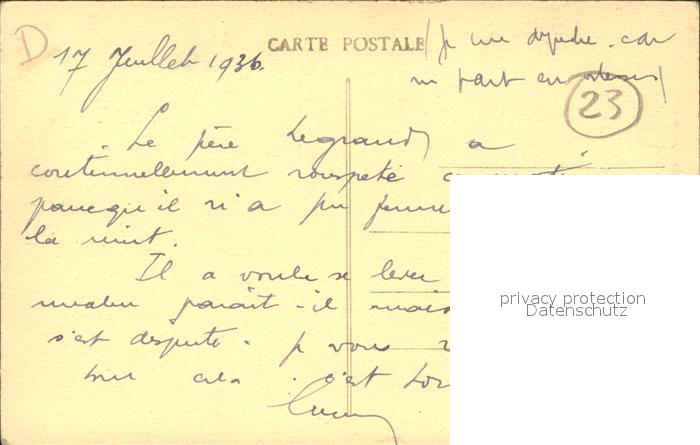 D
17 Juillet 1936.
CARTE POSTALE
(je me dépêche. car
part en
23
Le père Legrand a
continuellement rouspété ce matin
parcequ'il n'a pu fumer
la nuit.
Il a voulu se lever
matin paraît-il mais
s'est disputé. je vous
sur cela. c'est
privacy protection
Datenschutz